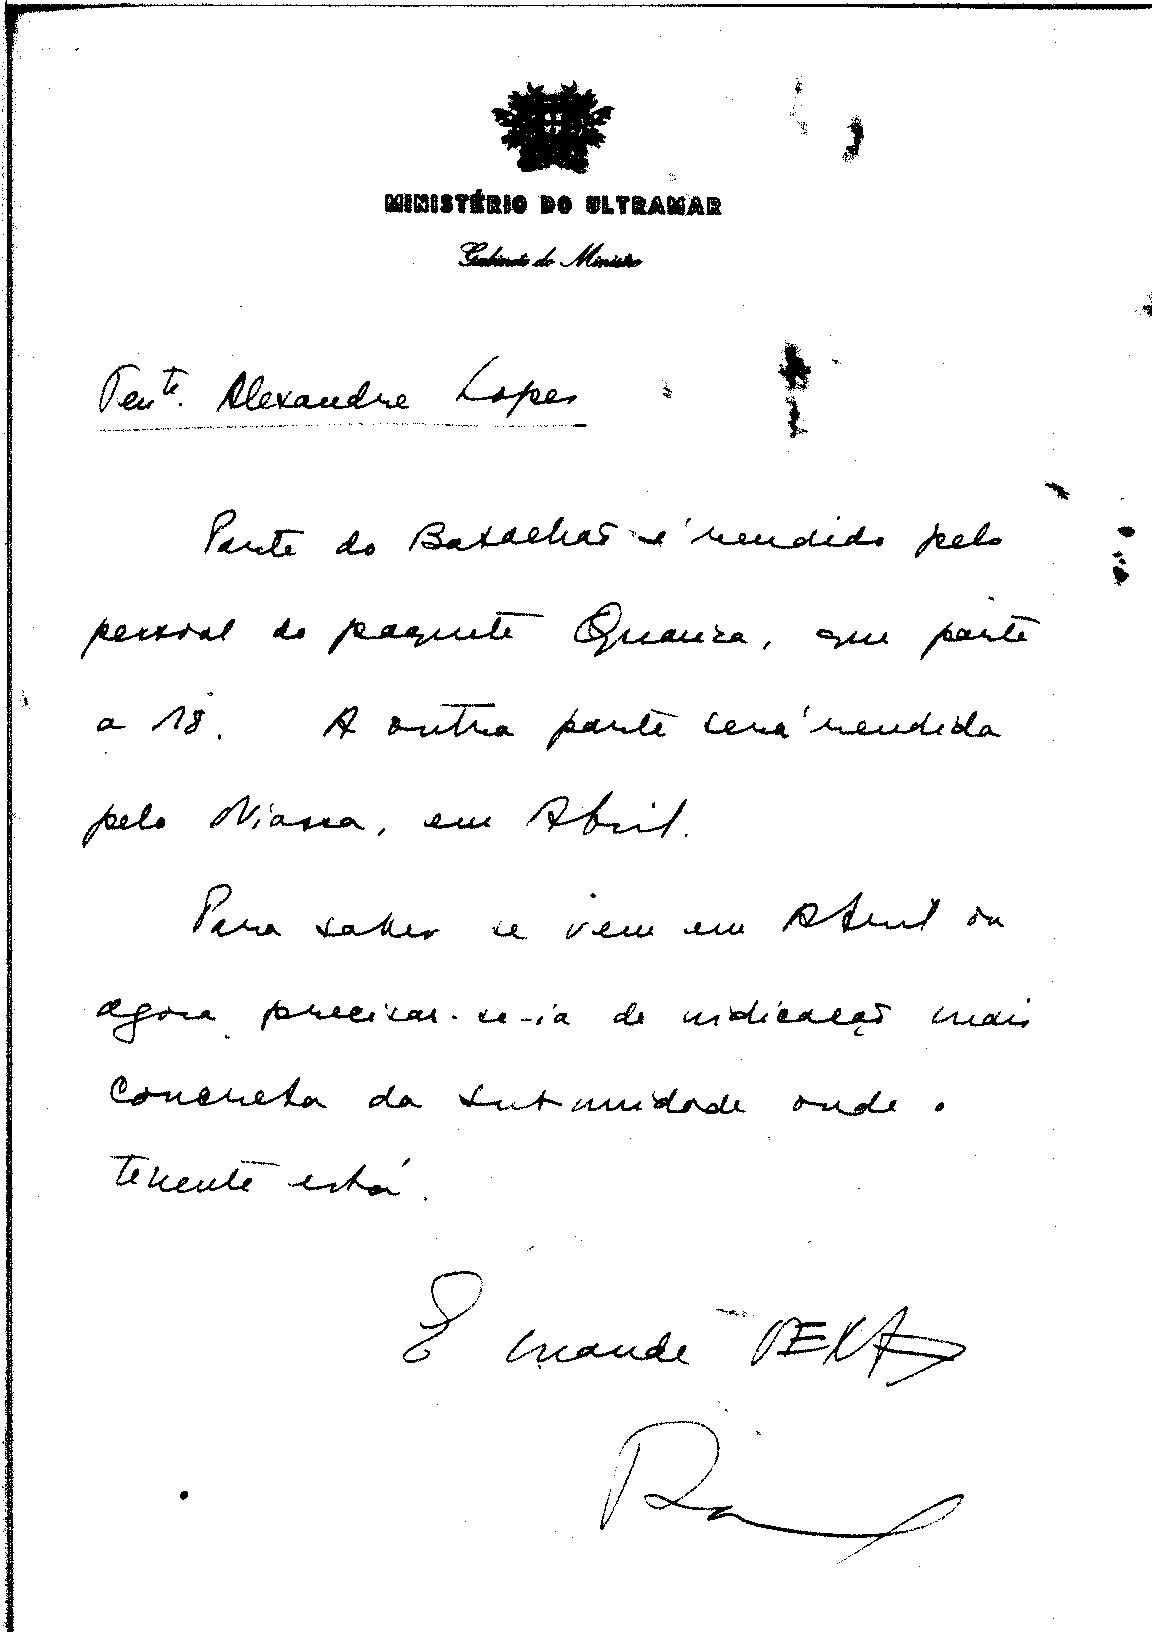 MINISTÉRIO DO ULTRAMAR
Gabinete do Ministro
Tente. Alexandre Lopes
Parte do Batalhão é rendido pelo
pessoal do paquete Quanza, que parte
a 18. A outra parte será rendida
pelo Niassa, em Abril.
Para saber se vem em Abril ou
agora precisar-se-ia de indicação mais
concreta da subunidade onde o
tenente está.